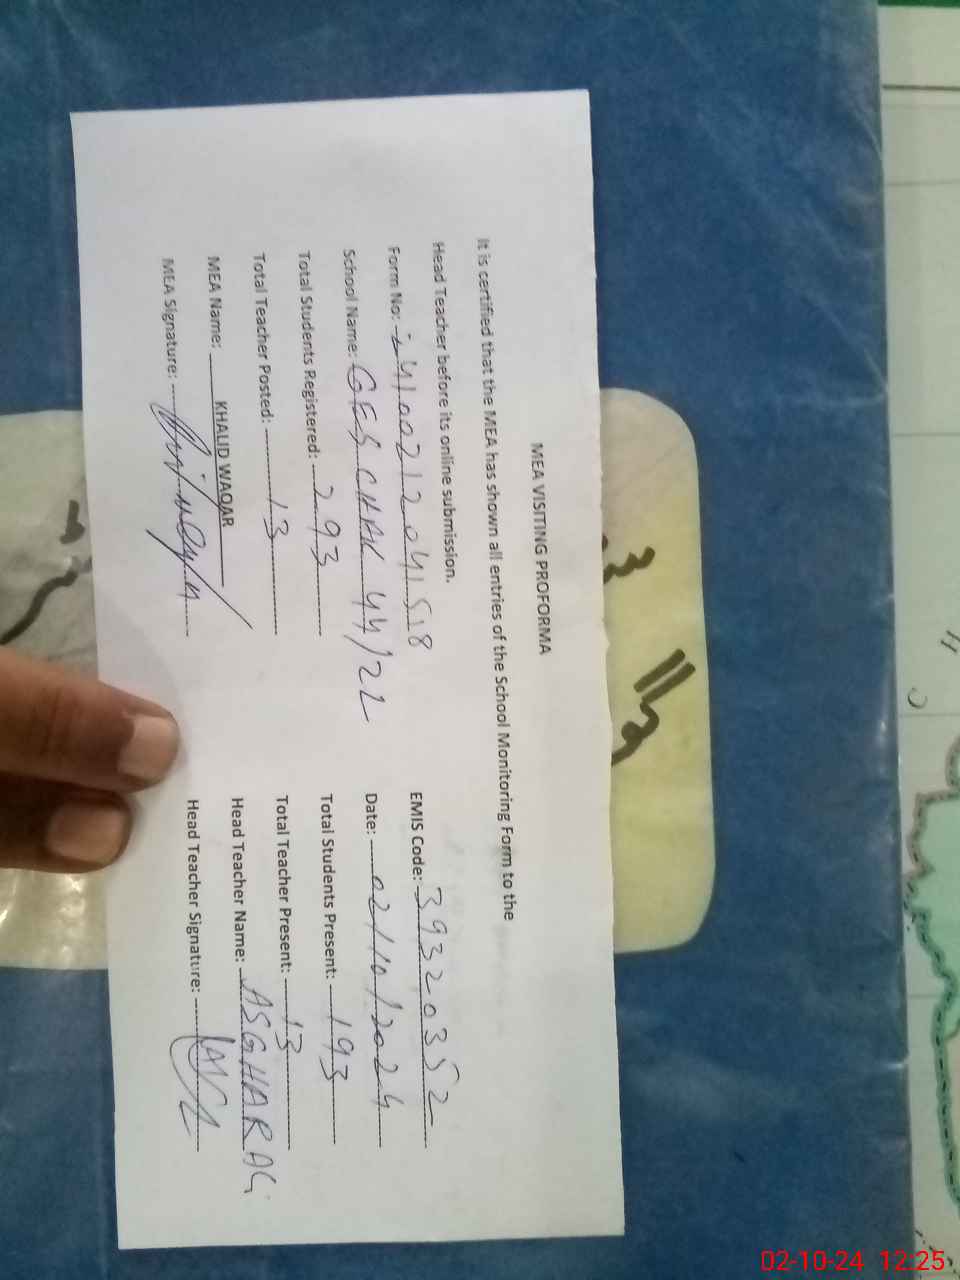 MEA VISITING PROFORMA
It is certified that the MEA has shown all entries of the School Monitoring Form to the
Head Teacher before its online submission.
Form No: 4100212041518
EMIS Code: 39320352
School Name: GES CHAK 44/22
Date: 02/10/2024
Total Students Registered: 293
Total Students Present: 193
Total Teacher Posted: 13
Total Teacher Present: 13
MEA Name: KHALID WAQAR
Head Teacher Name: ASGHAR AG
MEA Signature:
Head Teacher Signature:
02-10-24 12:25